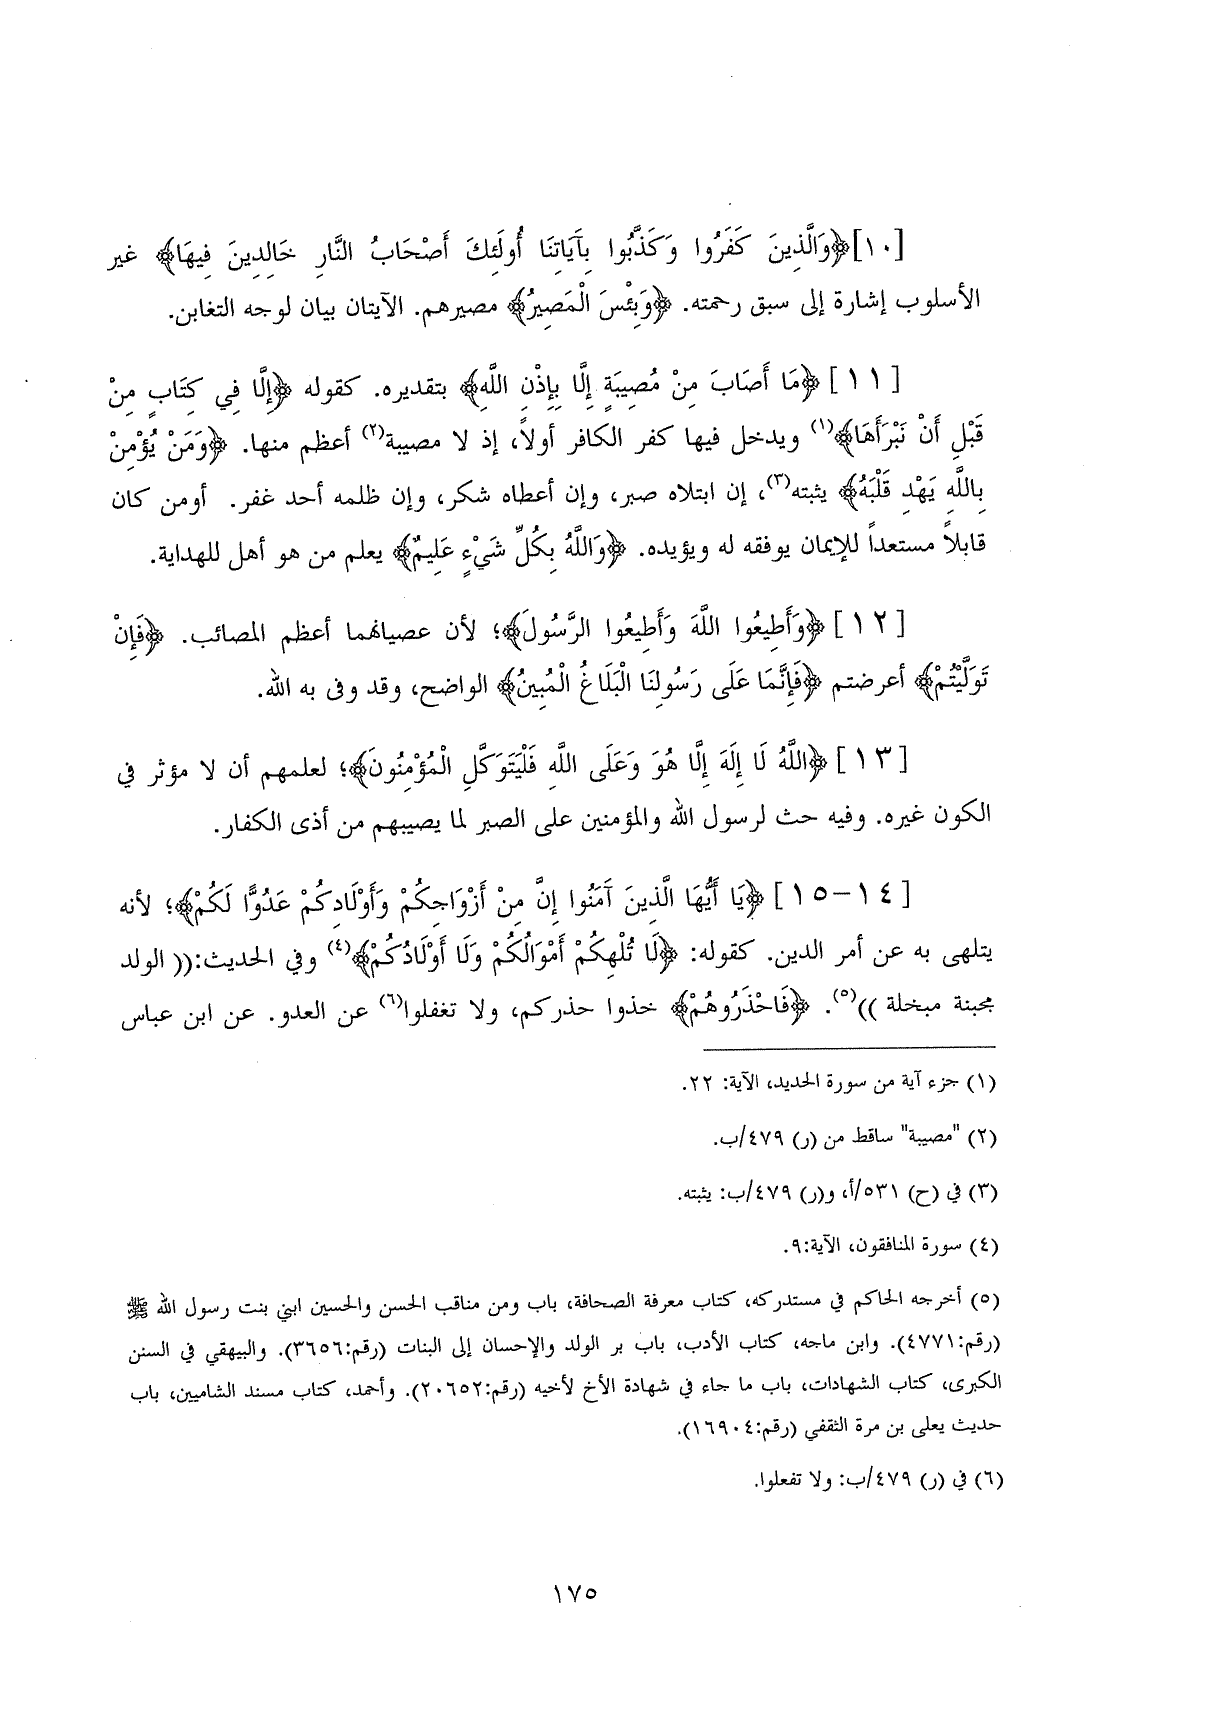 [١٠]﴿وَالَّذِينَ كَفَرُوا وَكَذَّبُوا بِآيَاتِنَا أُولَئِكَ أَصْحَابُ النَّارِ خَالِدِينَ فِيهَا﴾ غير
الأسلوب إشارة إلى سبق رحمته. ﴿وَبِئْسَ الْمَصِيرُ﴾ مصيرهم. الآيتان بيان لوجه التغابن.
[١١] ﴿مَا أَصَابَ مِنْ مُصِيبَةٍ إِلَّا بِإِذْنِ اللَّهِ﴾ بتقديره. كقوله ﴿إِلَّا فِي كِتَابٍ مِنْ
قَبْلِ أَنْ نَبْرَأَهَا﴾(١) ويدخل فيها كفر الكافر أولاً، إذ لا مصيبة(٢) أعظم منها. ﴿وَمَنْ يُؤْمِنْ
بِاللَّهِ يَهْدِ قَلْبَهُ﴾ يثبته(٣)، إن ابتلاه صبر، وإن أعطاه شكر، وإن ظلمه أحد غفر. أومن كان
قابلاً مستعداً للإيمان يوفقه له ويؤيده. ﴿وَاللَّهُ بِكُلِّ شَيْءٍ عَلِيمٌ﴾ يعلم من هو أهل للهداية.
[١٢] ﴿وَأَطِيعُوا اللَّهَ وَأَطِيعُوا الرَّسُولَ﴾؛ لأن عصيانهما أعظم المصائب. ﴿فَإِنْ
تَوَلَّيْتُمْ﴾ أعرضتم ﴿فَإِنَّمَا عَلَى رَسُولِنَا الْبَلَاغُ الْمُبِينُ﴾ الواضح، وقد وفى به الله.
[١٣] ﴿اللَّهُ لَا إِلَهَ إِلَّا هُوَ وَعَلَى اللَّهِ فَلْيَتَوَكَّلِ الْمُؤْمِنُونَ﴾؛ لعلمهم أن لا مؤثر في
الكون غيره. وفيه حث لرسول الله والمؤمنين على الصبر لما يصيبهم من أذى الكفار.
[١٤-١٥] ﴿يَا أَيُّهَا الَّذِينَ آَمَنُوا إِنَّ مِنْ أَزْوَاجِكُمْ وَأَوْلَادِكُمْ عَدُوًّا لَكُمْ﴾؛ لأنه
يتلهى به عن أمر الدين. كقوله: ﴿لَا تُلْهِكُمْ أَمْوَالُكُمْ وَلَا أَوْلَادُكُمْ﴾(٤) وفي الحديث:(( الولد
مجبنة مبخلة ))(٥). ﴿فَاحْذَرُوهُمْ﴾ خذوا حذركم، ولا تغفلوا(٦) عن العدو. عن ابن عباس
(١) جزء آية من سورة الحديد، الآية: ٢٢.
(٢) "مصيبة" ساقط من (ر) ٤٧٩/ب.
(٣) في (ح) ٥٣١/أ، و(ر) ٤٧٩/ب: يثبته.
(٤) سورة المنافقون، الآية:٩.
(٥) أخرجه الحاكم في مستدركه، كتاب معرفة الصحافة، باب ومن مناقب الحسن والحسين ابني بنت رسول الله ﷺ
(رقم:٤٧٧١). وابن ماجه، كتاب الأدب، باب بر الولد والإحسان إلى البنات (رقم:٣٦٥٦). والبيهقي في السنن
الكبرى، كتاب الشهادات، باب ما جاء في شهادة الأخ لأخيه (رقم:٢٠٦٥٢). وأحمد، كتاب مسند الشاميين، باب
حديث يعلى بن مرة الثقفي (رقم:١٦٩٠٤).
(٦) في (ر) ٤٧٩/ب: ولا تفعلوا.
١٧٥